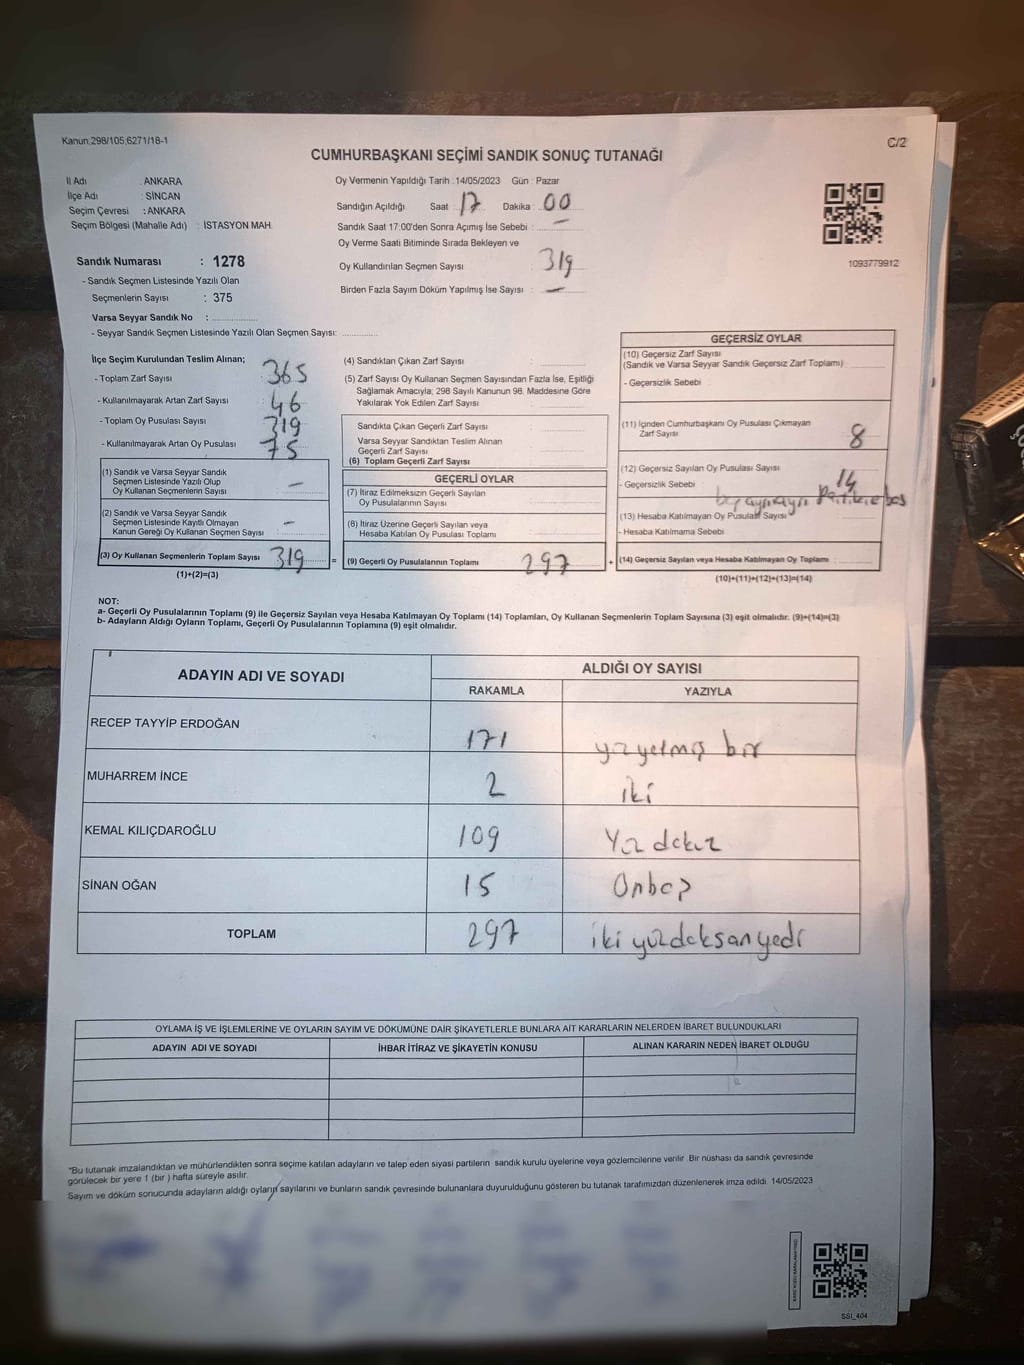 Kanun.298/105,6271/18-1
C/2
CUMHURBAŞKANI SEÇİMİ SANDIK SONUÇ TUTANAĞI
İl Adı : ANKARA
İlçe Adı : SİNCAN
Seçim Çevresi : ANKARA
Seçim Bölgesi (Mahalle Adı) : İSTASYON MAH.
Oy Vermenin Yapıldığı Tarih : 14/05/2023 Gün : Pazar
Sandığın Açıldığı Saat : 17 Dakika : 00
Sandık Saat 17:00'den Sonra Açımış İse Sebebi : —
Oy Verme Saati Bitiminde Sırada Bekleyen ve
Oy Kullandırılan Seçmen Sayısı 319
Birden Fazla Sayım Döküm Yapılmış İse Sayısı : —
1093779912
Sandık Numarası : 1278
- Sandık Seçmen Listesinde Yazılı Olan
Seçmenlerin Sayısı : 375
Varsa Seyyar Sandık No :
- Seyyar Sandık Seçmen Listesinde Yazılı Olan Seçmen Sayısı:
İlçe Seçim Kurulundan Teslim Alınan;
- Toplam Zarf Sayısı 365
- Kullanılmayarak Artan Zarf Sayısı 46
- Toplam Oy Pusulası Sayısı 319
- Kullanılmayarak Artan Oy Pusulası 75
(1) Sandık ve Varsa Seyyar Sandık
Seçmen Listesinde Yazılı Olup
Oy Kullanan Seçmenlerin Sayısı —
(2) Sandık ve Varsa Seyyar Sandık
Seçmen Listesinde Kayıtlı Olmayan
Kanun Gereği Oy Kullanan Seçmen Sayısı —
(3) Oy Kullanan Seçmenlerin Toplam Sayısı 319
(1)+(2)=(3)
(4) Sandıktan Çıkan Zarf Sayısı
(5) Zarf Sayısı Oy Kullanan Seçmen Sayısından Fazla İse, Eşitliği
Sağlamak Amacıyla; 298 Sayılı Kanunun 98. Maddesine Göre
Yakılarak Yok Edilen Zarf Sayısı
Sandıkta Çıkan Geçerli Zarf Sayısı
Varsa Seyyar Sandıktan Teslim Alınan
Geçerli Zarf Sayısı
(6) Toplam Geçerli Zarf Sayısı
GEÇERLİ OYLAR
(7) İtiraz Edilmeksizin Geçerli Sayılan
Oy Pusulalarının Sayısı
(8) İtiraz Üzerine Geçerli Sayılan veya
Hesaba Katılan Oy Pusulası Toplamı
= (9) Geçerli Oy Pusulalarının Toplamı 297
GEÇERSİZ OYLAR
(10) Geçersiz Zarf Sayısı
(Sandık ve Varsa Seyyar Sandık Geçersiz Zarf Toplamı)
- Geçersizlik Sebebi
(11) İçinden Cumhurbaşkanı Oy Pusulası Çıkmayan
Zarf Sayısı 8
(12) Geçersiz Sayılan Oy Pusulası Sayısı 14
- Geçersizlik Sebebi
(13) Hesaba Katılmayan Oy Pusulası Sayısı
- Hesaba Katılmama Sebebi
+ (14) Geçersiz Sayılan veya Hesaba Katılmayan Oy Toplamı
(10)+(11)+(12)+(13)=(14)
NOT:
a- Geçerli Oy Pusulalarının Toplamı (9) ile Geçersiz Sayılan veya Hesaba Katılmayan Oy Toplamı (14) Toplamları, Oy Kullanan Seçmenlerin Toplam Sayısına (3) eşit olmalıdır. (9)+(14)=(3)
b- Adayların Aldığı Oyların Toplamı, Geçerli Oy Pusulalarının Toplamına (9) eşit olmalıdır.
ADAYIN ADI VE SOYADI
ALDIĞI OY SAYISI
RAKAMLA YAZIYLA
RECEP TAYYİP ERDOĞAN 171 yüzyetmiş bir
MUHARREM İNCE 2 iki
KEMAL KILIÇDAROĞLU 109 Yüz dokuz
SİNAN OĞAN 15 Onbeş
TOPLAM 297 iki yüzdoksanyedi
OYLAMA İŞ VE İŞLEMLERİNE VE OYLARIN SAYIM VE DÖKÜMÜNE DAİR ŞİKAYETLERLE BUNLARA AİT KARARLARIN NELERDEN İBARET BULUNDUKLARI
ADAYIN ADI VE SOYADI İHBAR İTİRAZ VE ŞİKAYETİN KONUSU ALINAN KARARIN NEDEN İBARET OLDUĞU
"Bu tutanak imzalandıktan ve mühürlendikten sonra seçime katılan adayların ve talep eden siyasi partilerin sandık kurulu üyelerine veya gözlemcilerine verilir. Bir nüshası da sandık çevresinde
görülecek bir yere 1 (bir ) hafta süreyle asılır.
Sayım ve döküm sonucunda adayların aldığı oyların sayılarını ve bunların sandık çevresinde bulunanlara duyurulduğunu gösteren bu tutanak tarafımızdan düzenlenerek imza edildi. 14/05/2023
SSI_404